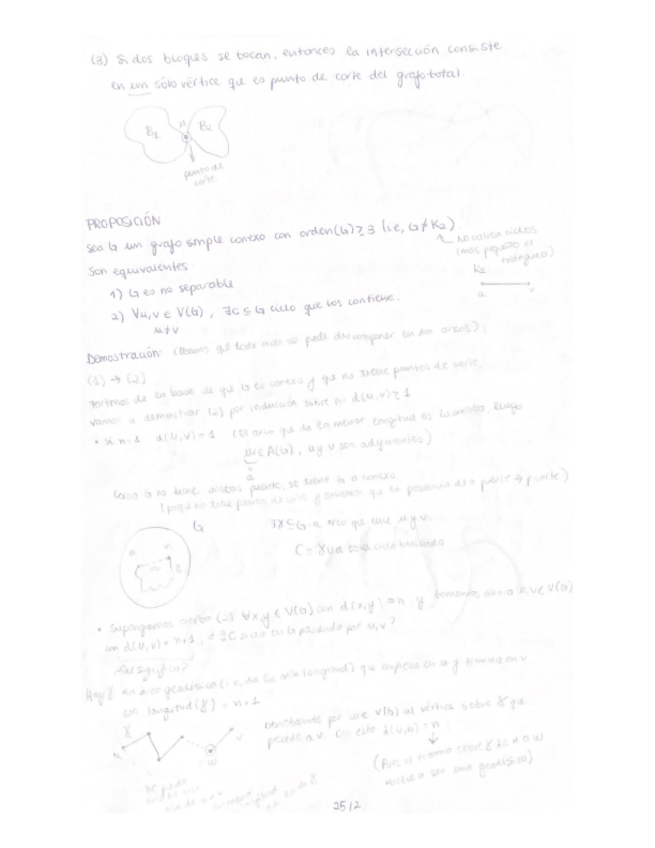 (3) Si dos bloques se tocan, entonces la intersección consiste
en un sólo vértice que es punto de corte del grafo total.
B1 u B2
punto de
corte
PROPOSICIÓN
Sea G un grafo simple conexo con orden(G) ≥ 3 (i.e, G ≠ K2)
no caben ciclos
(más pequeño el
triángulo)
Son equivalentes
K2
u v
1) G es no separable
2) ∀u,v ∈ V(G), ∃C ⊆ G ciclo que los contiene.
u≠v
Demostración: todo ciclo se puede descomponer en dos arcos)
(1) → (2)
Partimos de la base de que G es conexo y que no tiene puntos de corte.
Vamos a demostrar (2) por inducción sobre n = d(u,v) ≥ 1
• Si n=1 d(u,v)=1 (El arco que da la menor longitud es la arista, luego
uv ∈ A(G), u y v son adyacentes)
a
Como G no tiene aristas puente, se tiene G-a conexo
G
∃γ ⊆ G-a arco que une u y v.
C = γ∪a es el ciclo buscado
• Supongamos cierto (2) ∀x,y ∈ V(G) con d(x,y) = n y tomemos ahora u,v ∈ V(G)
con d(u,v) = n+1, ¿∃C ciclo en G pasando por u,v?
Hay γ un arco geodésico (i.e, da la mín longitud) que empieza en u y termina en v
con longitud(γ) = n+1
γ
Denotamos por w ∈ V(G) al vértice sobre γ que
precede a v. Con esto d(u,w) = n
u v
w
(Pues el tramo sobre γ de u a w
vuelve a ser una geodésica)
25/2